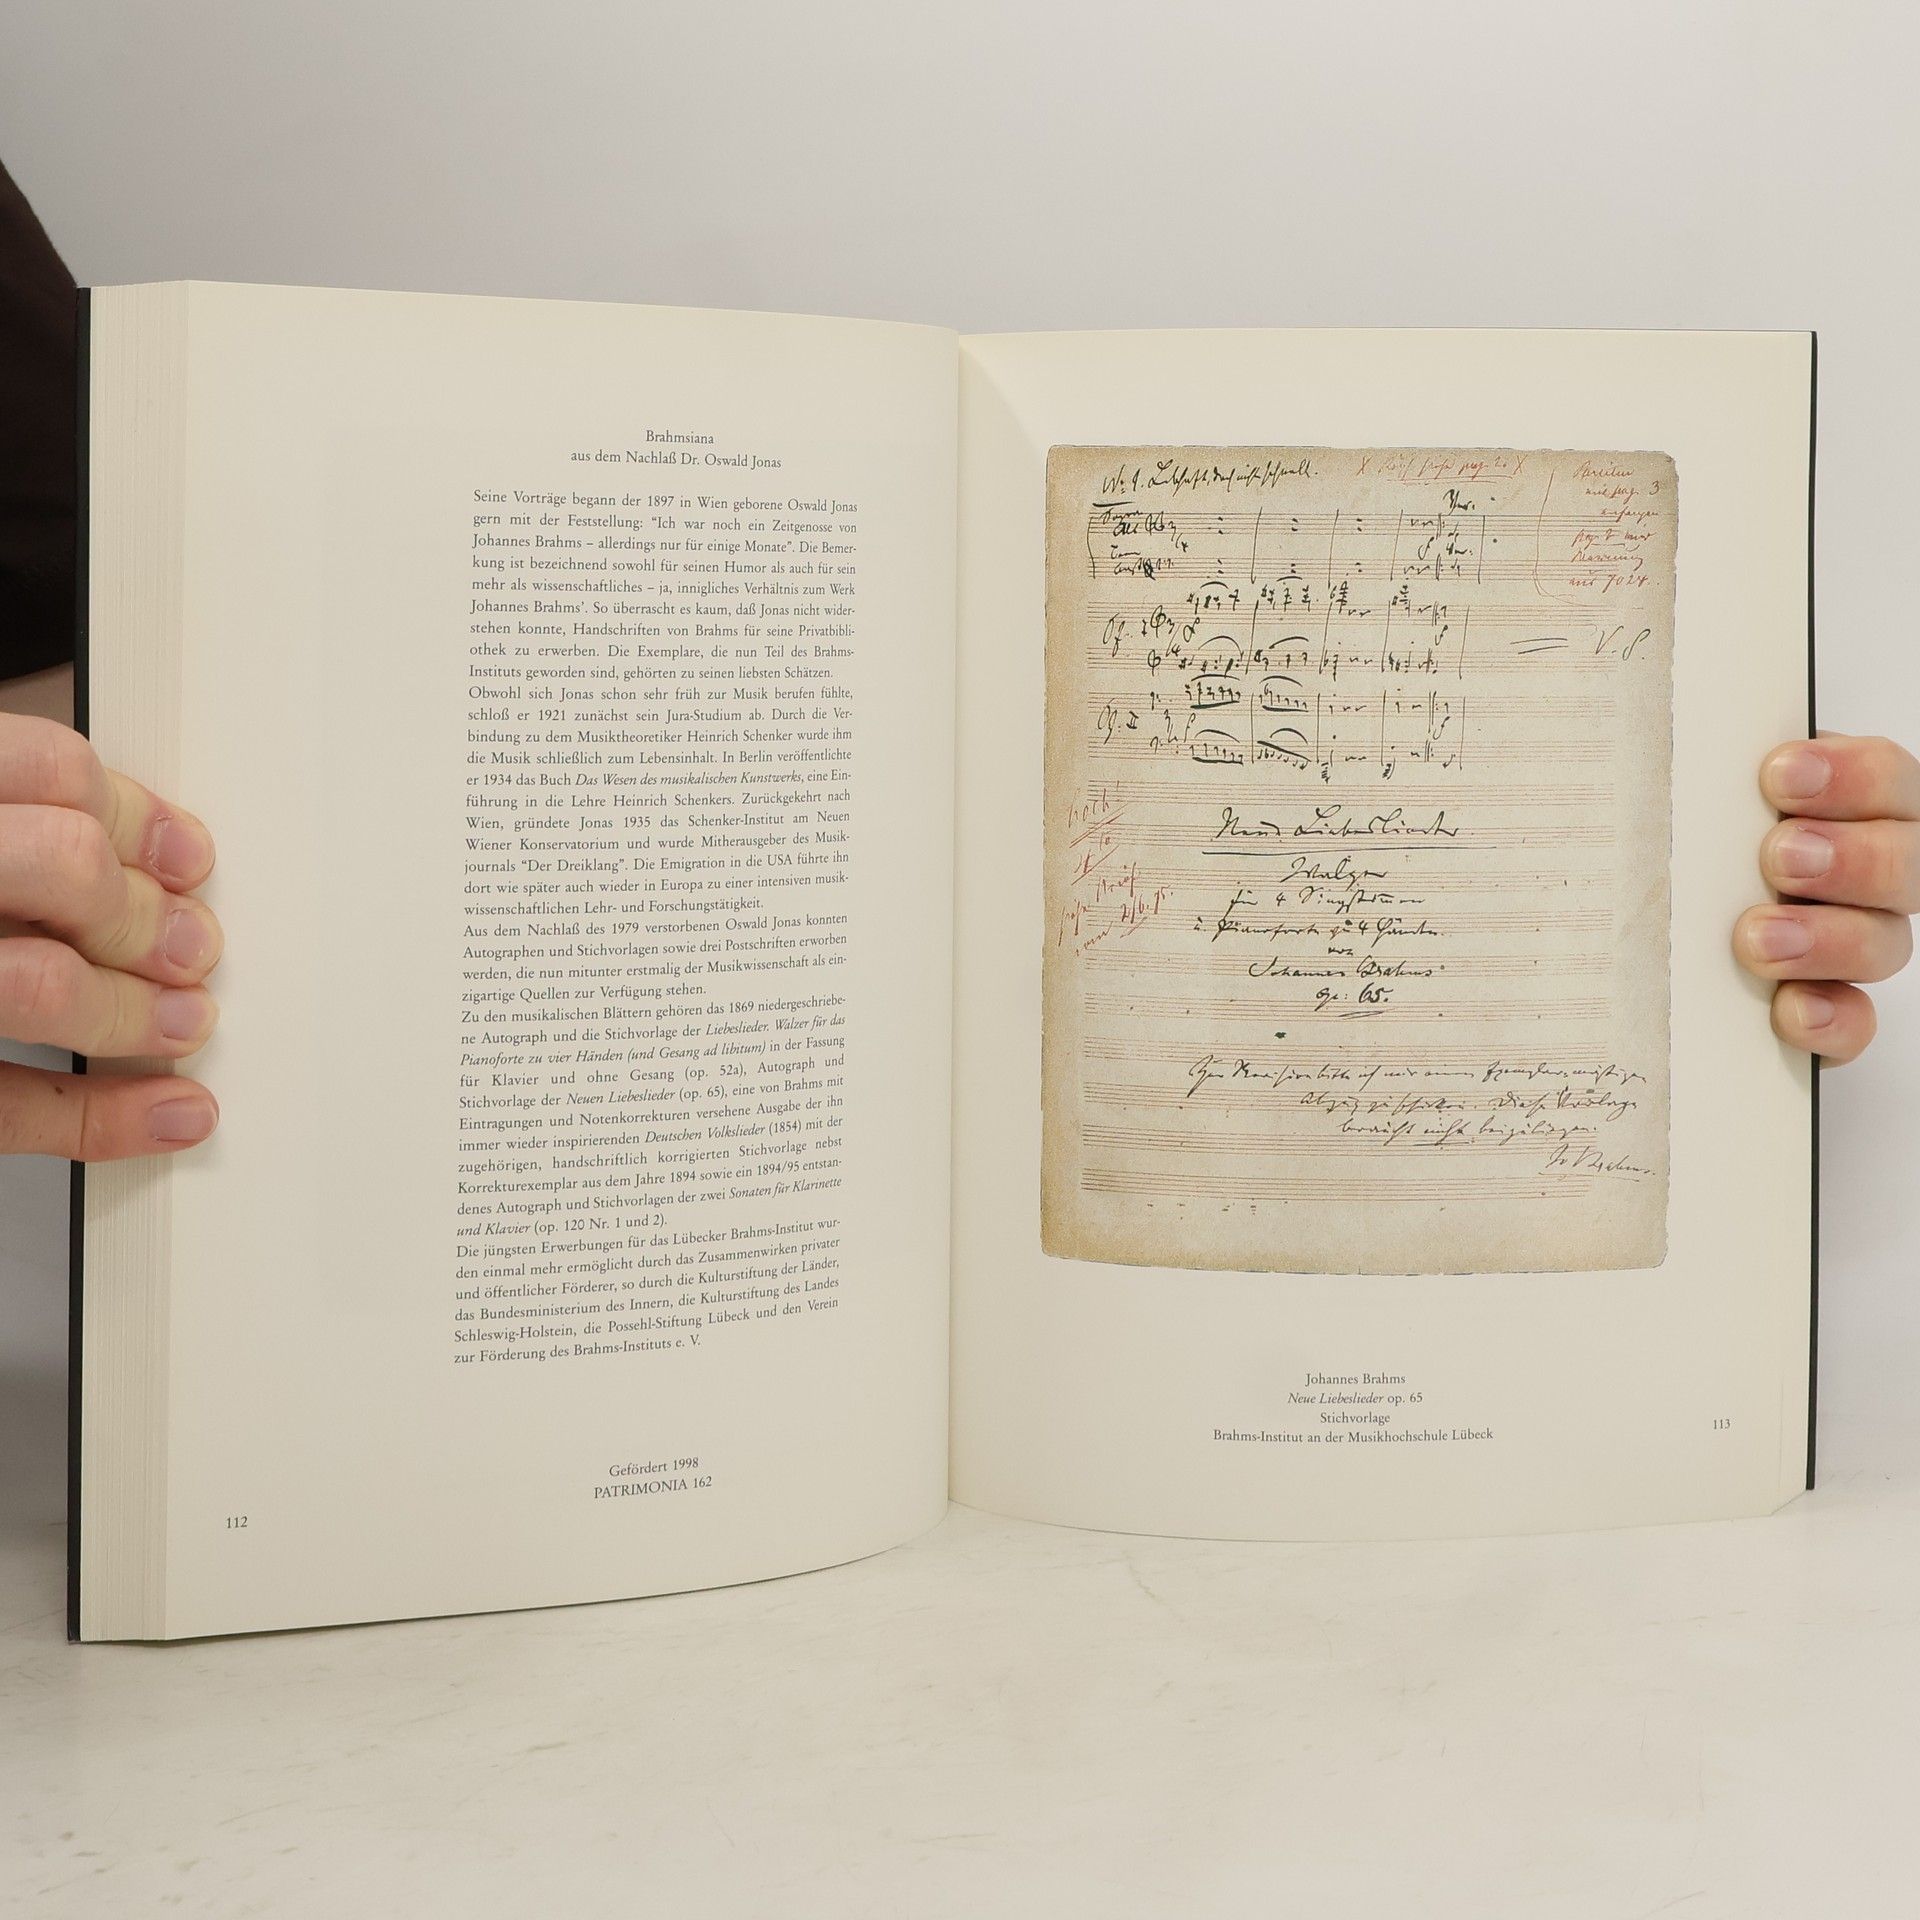 Brahmsiana
aus dem Nachlaß Dr. Oswald Jonas
Seine Vorträge begann der 1897 in Wien geborene Oswald Jonas
gern mit der Feststellung: “Ich war noch ein Zeitgenosse von
Johannes Brahms – allerdings nur für einige Monate”. Die Bemer-
kung ist bezeichnend sowohl für seinen Humor als auch für sein
mehr als wissenschaftliches – ja, innigliches Verhältnis zum Werk
Johannes Brahms’. So überrascht es kaum, daß Jonas nicht wider-
stehen konnte, Handschriften von Brahms für seine Privatbibli-
othek zu erwerben. Die Exemplare, die nun Teil des Brahms-
Instituts geworden sind, gehörten zu seinen liebsten Schätzen.
Obwohl sich Jonas schon sehr früh zur Musik berufen fühlte,
schloß er 1921 zunächst sein Jura-Studium ab. Durch die Ver-
bindung zu dem Musiktheoretiker Heinrich Schenker wurde ihm
die Musik schließlich zum Lebensinhalt. In Berlin veröffentlichte
er 1934 das Buch Das Wesen des musikalischen Kunstwerks, eine Ein-
führung in die Lehre Heinrich Schenkers. Zurückgekehrt nach
Wien, gründete Jonas 1935 das Schenker-Institut am Neuen
Wiener Konservatorium und wurde Mitherausgeber des Musik-
journals “Der Dreiklang”. Die Emigration in die USA führte ihn
dort wie später auch wieder in Europa zu einer intensiven musik-
wissenschaftlichen Lehr- und Forschungstätigkeit.
Aus dem Nachlaß des 1979 verstorbenen Oswald Jonas konnten
Autographen und Stichvorlagen sowie drei Postschriften erworben
werden, die nun mitunter erstmalig der Musikwissenschaft als ein-
zigartige Quellen zur Verfügung stehen.
Zu den musikalischen Blättern gehören das 1869 niedergeschriebe-
ne Autograph und die Stichvorlage der Liebeslieder. Walzer für das
Pianoforte zu vier Händen (und Gesang ad libitum) in der Fassung
für Klavier und ohne Gesang (op. 52a), Autograph und
Stichvorlage der Neuen Liebeslieder (op. 65), eine von Brahms mit
Eintragungen und Notenkorrekturen versehene Ausgabe der ihn
immer wieder inspirierenden Deutschen Volkslieder (1854) mit der
zugehörigen, handschriftlich korrigierten Stichvorlage nebst
Korrekturexemplar aus dem Jahre 1894 sowie ein 1894/95 entstan-
denes Autograph und Stichvorlagen der zwei Sonaten für Klarinette
und Klavier (op. 120 Nr. 1 und 2).
Die jüngsten Erwerbungen für das Lübecker Brahms-Institut wur-
den einmal mehr ermöglicht durch das Zusammenwirken privater
und öffentlicher Förderer, so durch die Kulturstiftung der Länder,
das Bundesministerium des Innern, die Kulturstiftung des Landes
Schleswig-Holstein, die Possehl-Stiftung Lübeck und den Verein
zur Förderung des Brahms-Instituts e. V.
Gefördert 1998
PATRIMONIA 162
112
No 1. Lebhaft, doch nicht schnell.
V. S.
Neue Liebeslieder
Walzer
für 4 Singstimmen
u. Pianoforte zu 4 Händen
von
Johannes Brahms
op: 65.
Zur Revision bitte ich mir einen
Abzug zu schicken. Diese Vorlage
braucht nicht beizuliegen.
J. Brahms.
Johannes Brahms
Neue Liebeslieder op. 65
Stichvorlage
Brahms-Institut an der Musikhochschule Lübeck
113